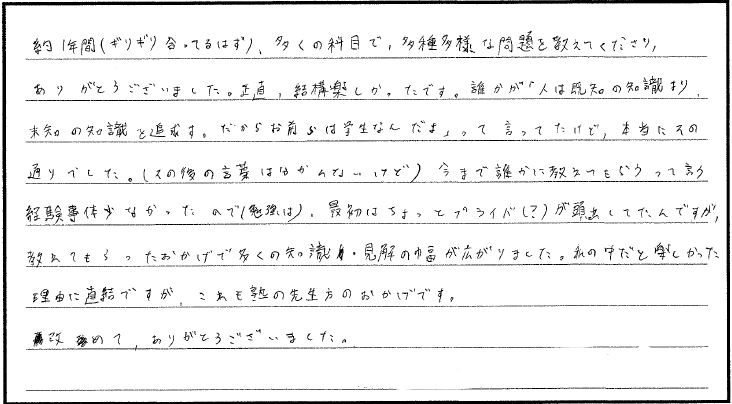 約1年間(ギリギリ合ってるはず)、多くの科目で、多種多様な問題を教えてくださり、
ありがとうございました。正直、結構楽しかったです。誰かが「人は既知の知識より、
未知の知識を追求す。だからお前らは学生なんだよ」って言ってたけど、本当にその
通りでした。(その後の言葉はわかんないけど)今まで誰かに教えてもらうって言う
経験事体少なかったので(勉強は)、最初はちょっとプライド(?)が顔出してたんですが、
教えてもらったおかげで多くの知識・見解の幅が広がりました。私の中だと楽しかった
理由に直結ですが、これも塾の先生方のおかげです。
改めて、ありがとうございました。